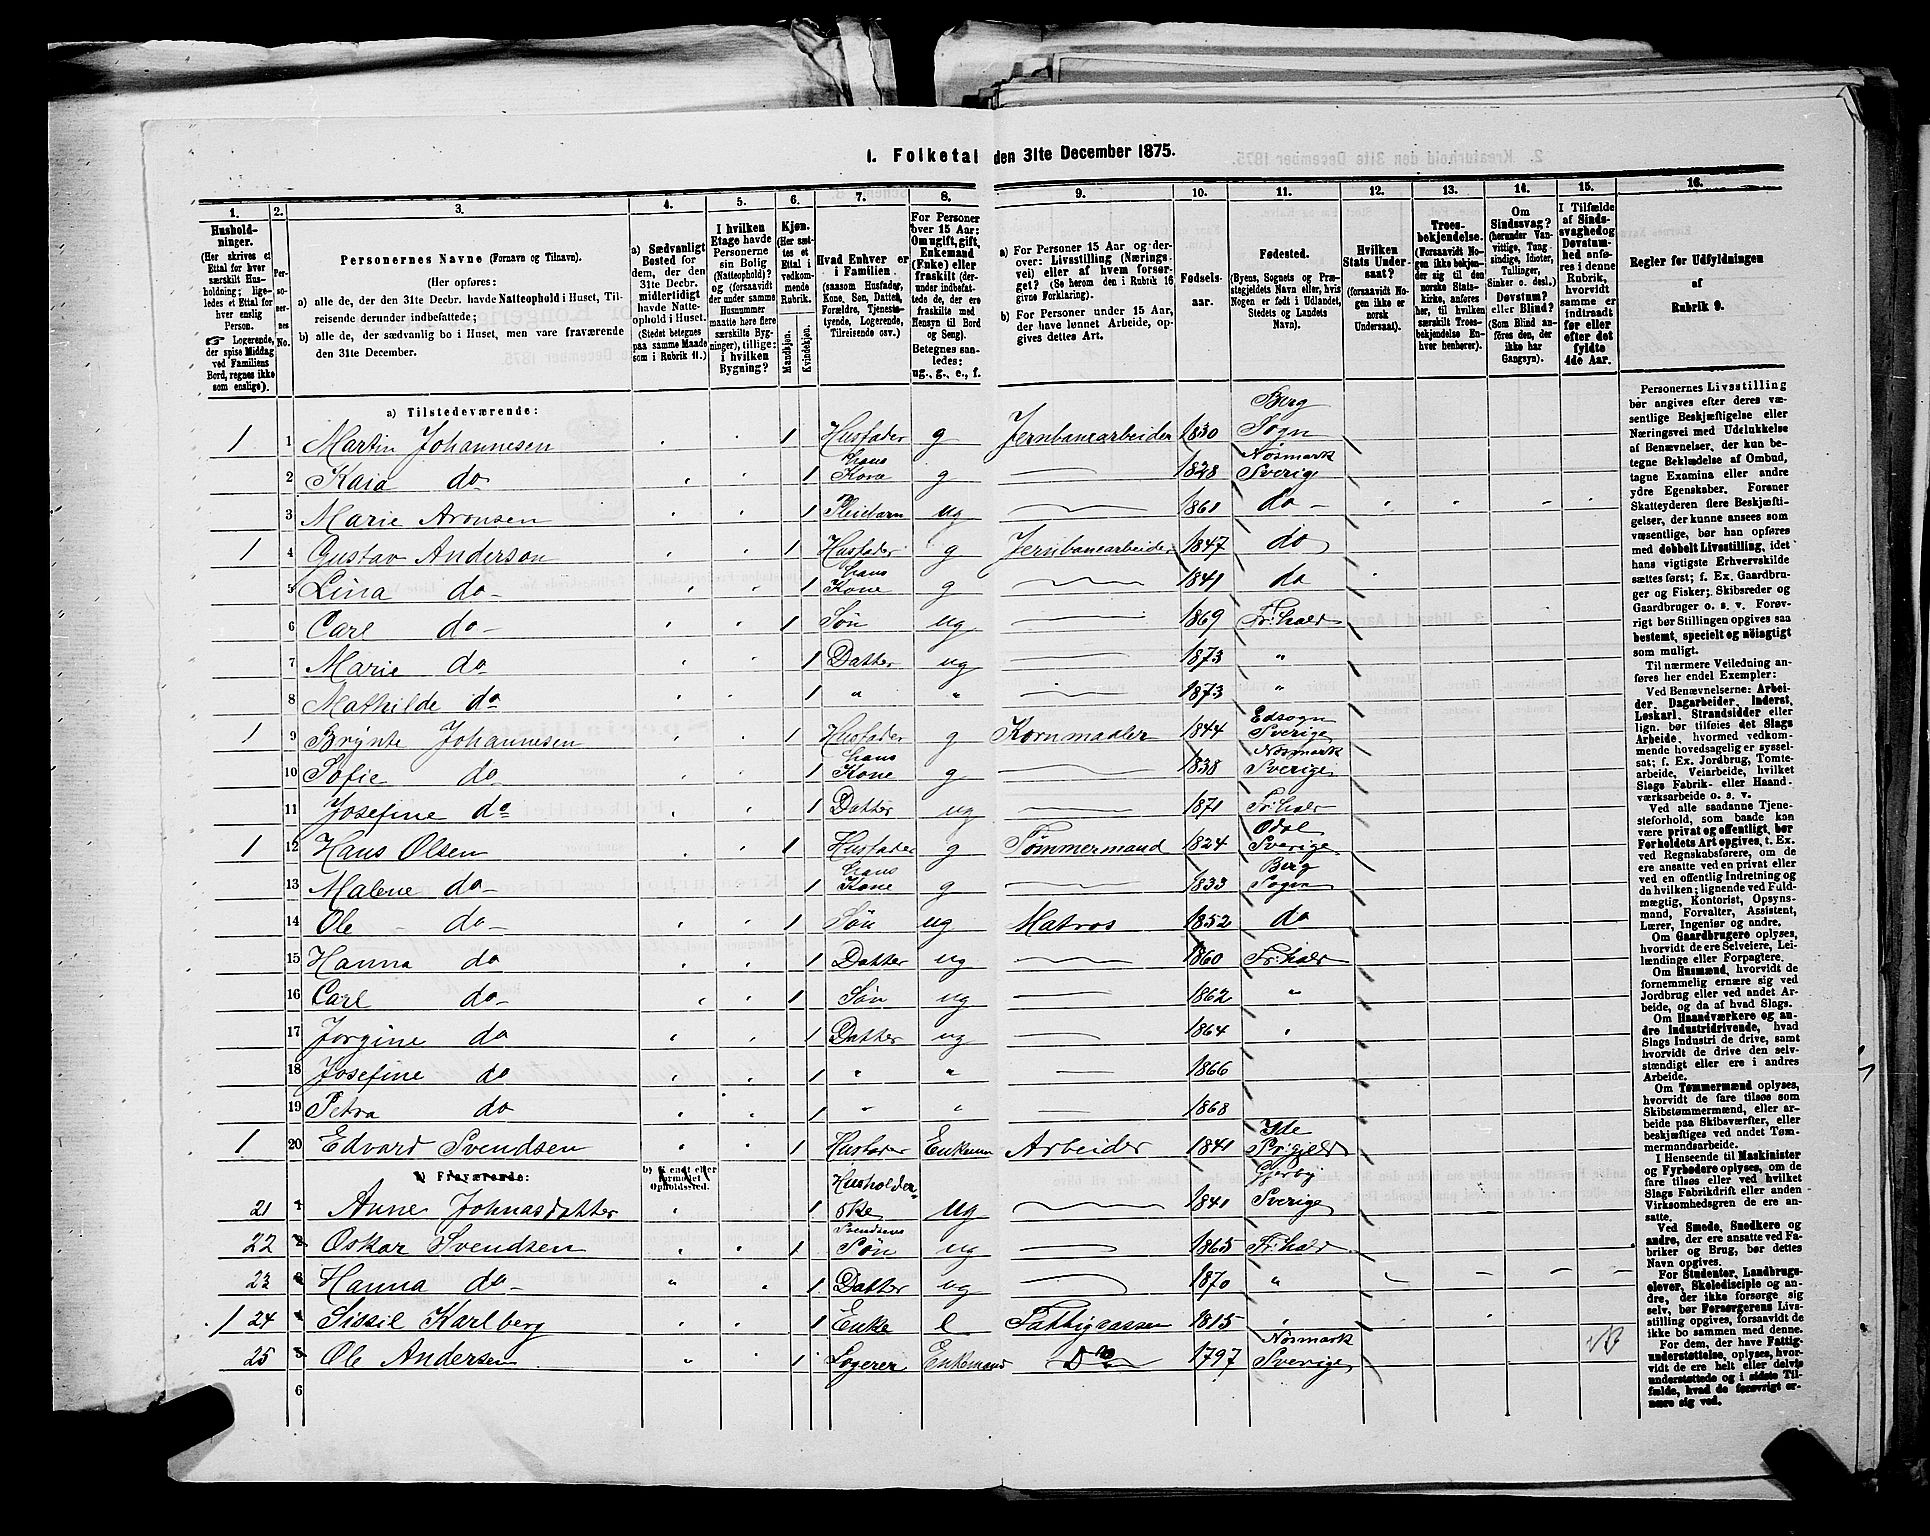 1. Folketal den 31te December 1875.
1. Husholdninger. (Her skrives et Ettal for hver særskilt Husholdning; ligeledes et Ettal for hver enslig Person. ☞ Logerende, der spise Middag ved Familiens Bord, regnes ikke som enslige).
2. Personernes No.
3. Personernes Navne (Fornavn og Tilnavn).
(Her opføres:
a) alle de, der den 31te Decbr. havde Natteophold i Huset, Tilreisende derunder indbefattede;
b) alle de, der sædvanlig bo i Huset, men vare fraværende den 31te December.
4. a) Sædvanligt Bosted for dem, der den 31te Decbr. midlertidigt havde Natteophold i Huset. (Stedet betegnes paa samme Maade som i Rubrik 11.)
5. I hvilken Etage havde Personerne sin Bolig (Natteophold)? og (forsaavidt der under samme Husnummer maatte høre flere særskilte Bygninger), tillige: i hvilken Bygning?
6. Kjøn. (Her sættes et Ettal i vedkommende Rubrik. Mandkjøn. Kvindekjøn.
7. Hvad Enhver er i Familien. (saasom Husfader, Kone, Søn, Datter, Forældre, Tjenestetyende, Logerende, Tilreisende osv.)
8. For Personer over 15 Aar: Om ugift, gift, Enkemand (Enke) eller fraskilt (derunder indbefattede de, der ere fraskilte med Hensyn til Bord og Seng). Betegnes saaledes: ug., g., e., f.
9. a) For Personer 15 Aar og derover: Livsstilling (Næringsvei) eller af hvem forsørget? (Se herom den i Rubrik 16 givne Forklaring).
b) For Personer under 15 Aar, der have lønnet Arbeide, opgives dettes Art.
10. Fødselsaar.
11. Fødested. (Byens, Sognets og Præstegjeldets Navn eller, hvis Nogen er født i Udlandet, Stedets og Landets Navn).
12. Hvilken Stats Undersaat? (forsaavidt Nogen ikke er norsk Undersaat).
13. Troesbekjendelse. (Forsaavidt Nogen ikke bekjender sig til den norske Statskirke, anføres her, til hvilken særskilt Troesbekjendelse Enhver henhører).
14. Om Sindssvag? (herunder Vanvittige, Tungsindige, Idioter, Tullinger, Sinker o. desl.) Døvstum? eller Blind? (Som Blind anføres den, der ikke har Gangsyn).
15. I Tilfælde af Sindssvaghed og Døvstumhed anføres i denne Rubrik, hvorvidt samme er indtraadt før eller efter det fyldte 4de Aar.
16. Regler for Udfyldningen af Rubrik 9.
a) Tilstedeværende:
1 1 Martin Johannesen 1 Husfader g Jernbanearbeider 1830 Berg Sogn
2 Kaia do 1 hans Kone g 1828 Nosmark Sverige
3 Marie Aronsen 1 Pleiebarn ug 1861 do
1 4 Gustav Anderson 1 Husfader g Jernbanearbeider 1847 do
5 Lina do 1 hans Kone g 1841 do
6 Carl do 1 Søn ug 1869 Fr:hald
7 Marie do 1 Datter ug 1873 "
8 Mathilde do 1 " " 1873 "
1 9 Brynte Johannesen 1 Husfader g Kornmaaler 1844 Edsogn Sverige
10 Sofie do 1 hans Kone g 1838 Nosmark Sverige
11 Josefine do 1 Datter ug 1871 Fr:hald
1 12 Hans Olsen 1 Husfader g Tømmermand 1824 Odal Sverige
13 Malene do 1 hans Kone g 1833 Berg Sogn
14 Ole do 1 Søn ug Matros 1852 do
15 Hanna do 1 Datter ug 1860 Fr:hald
16 Carl do 1 Søn ug 1862 "
17 Jorgine do 1 Datter ug 1864 "
18 Josefine do 1 " " 1866
19 Petra do 1 " " 1868
1 20 Edvard Svendsen 1 Husfader Enkem Arbeider 1841 Ide Pr:gjeld
b) Fraværende: b) Kjendt eller formodet Opholdssted.
21 1 Anne Johnasdatter 1 Husholderske ug 1841 Sverige
22 2 Oskar Svendsen 1 Svendsens Søn ug 1865 Fr:hald
23 3 Hanna do 1 Datter ug 1870 "
1 24 4 Sissil Karlberg 1 Enke e Fattigcassen 1815 "
25 5 Ole Andersen 1 Logerer Enkemand Do 1797 Nosmark Sverige
6
Personernes Livsstilling
bør angives efter deres væ-
sentlige Beskjæftigelse eller
Næringsvei med Udelukkelse
af Benævnelser, der kun be-
tegne Beklædelse af Ombud,
tagne Examina eller andre
ydre Egenskaber. Forener
Skatteyderen flere Beskjæfti-
gelser, der kunne ansees som
væsentlige, bør han opføres
med dobbelt Livsstilling, idet
hans vigtigste Erhvervskilde
sættes først; f. Ex. Gaardbru-
ger og Fisker; Skibsreder og
Gaardbruger o. s. v. Forøv-
rigt bør Stillingen opgives saa
bestemt, specielt og nöiagtigt
som muligt.
Til nærmere Veiledning an-
føres her endel Exempler:
Ved Benævnelserne: Arbei-
der, Dagarbeider, Inderst,
Løskarl, Strandsidder eller
lign. bør tilføies det Slags
Arbeide, hvormed vedkom-
mende hovedsagelig er syssel-
sat; f. Ex. Jordbrug, Tomte-
arbeide, Veiarbeide, hvilket
Slags Fabrik- eller Haand-
værksarbeide o. s. v.
Ved alle saadanne Tjene-
steforhold, som baade kan
være privat og offentligt, bør
Forholdets Art opgives, t. Ex.
ved Regnskabsførere, om de
ere ansatte ved en privat eller
ved en offentlig Indretning og
da hvilken; lignende ved Fuld-
mægtig, Kontorist, Opsyns-
mand, Forvalter, Assistent,
Lærer, Ingeniør og andre.
Om Gaardbrugere oplyses,
hvorvidt de ere Selveiere, Lei-
lændinge eller Forpagtere.
Om Husmænd, hvorvidt de
fornemmelig ernære sig ved
Jordbrug eller ved andet Ar-
beide, og da af hvad Slags.
Om Haandværkere og an-
dre Industridrivende, hvad
Slags Industri de drive, samt
hvorvidt de drive den selv-
stændigt eller ere i andres
Arbeide.
Om Tømmermænd oplyses,
hvorvidt de fare tilsøs som
Skibstømmermænd, eller ar-
beide paa Skibsværfter, eller
beskjæftiges ved andet Tøm-
mermandsarbeide.
I Henseende til Maskinister
og Fyrbødere oplyses, om de
fare tilsøs eller ved hvilket
Slags Fabrikdrift eller anden
Virksomhedsgren de ere an-
satte.
Ved Smede, Snedkere og
andre, der ere ansatte ved Fa-
briker og Brug, bør dettes
Navn opgives.
For Studenter, Landbrugs-
elever, Skoledisciple og an-
dre, der ikke forsørge sig
selv, bør Forsørgerens Livs-
stilling opgives, forsaavidt de
ikke bo sammen med denne.
For dem, der have Fattig-
understøttelse, oplyses, hvor-
vidt de ere helt eller delvis
understøttede og i sidste Til-
fælde, hvad de forøvrigt er-
nære sig ved.